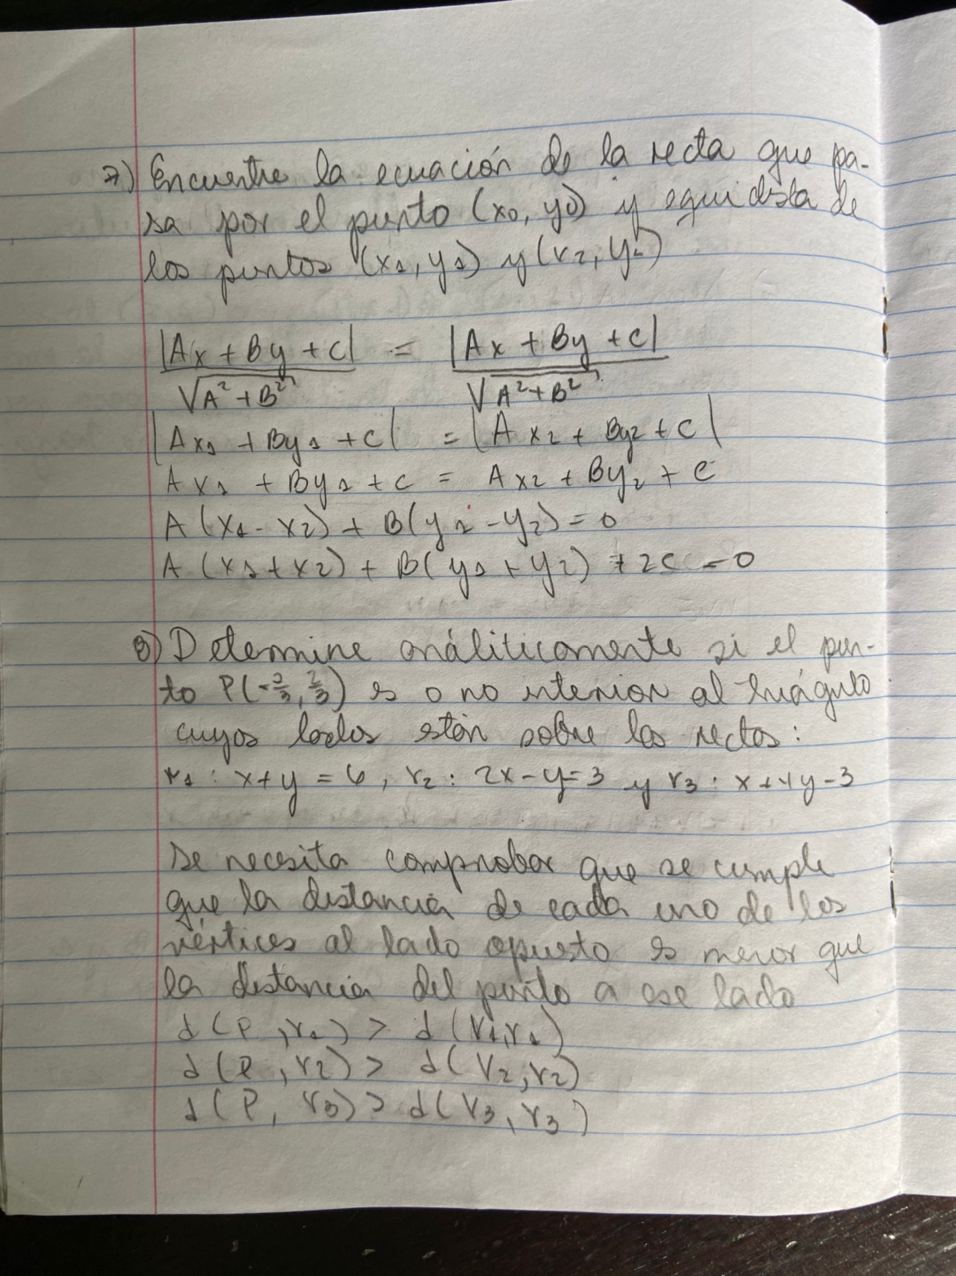 7) Encuentre la ecuación de la recta que pa-
sa por el punto (x0, y0) y equidista de
los puntos (x1, y1) y (x2, y2)
|Ax + By + C| / √A² + B² = |Ax + By + C| / √A² + B²
|Ax1 + By1 + C| = |Ax2 + By2 + C|
Ax1 + By1 + C = Ax2 + By2 + C
A(x1 - x2) + B(y1 - y2) = 0
A(x1 + x2) + B(y1 + y2) + 2C = 0
8) Determine análiticamente si el pun-
to P(-2/3, 2/3) es o no interior al triágulo
cuyos lados están sobre las rectas:
r1 : x + y = 6, r2 : 2x - y = 3 y r3 : x + 4y - 3
Se necesita comprobar que se cumple
que la distancia de cada uno de los
vértices al lado opuesto es menor que
la distancia del punto a ese lado
d(P, r1) > d(V1, r1)
d(P, r2) > d(V2, r2)
d(P, r3) > d(V3, r3)